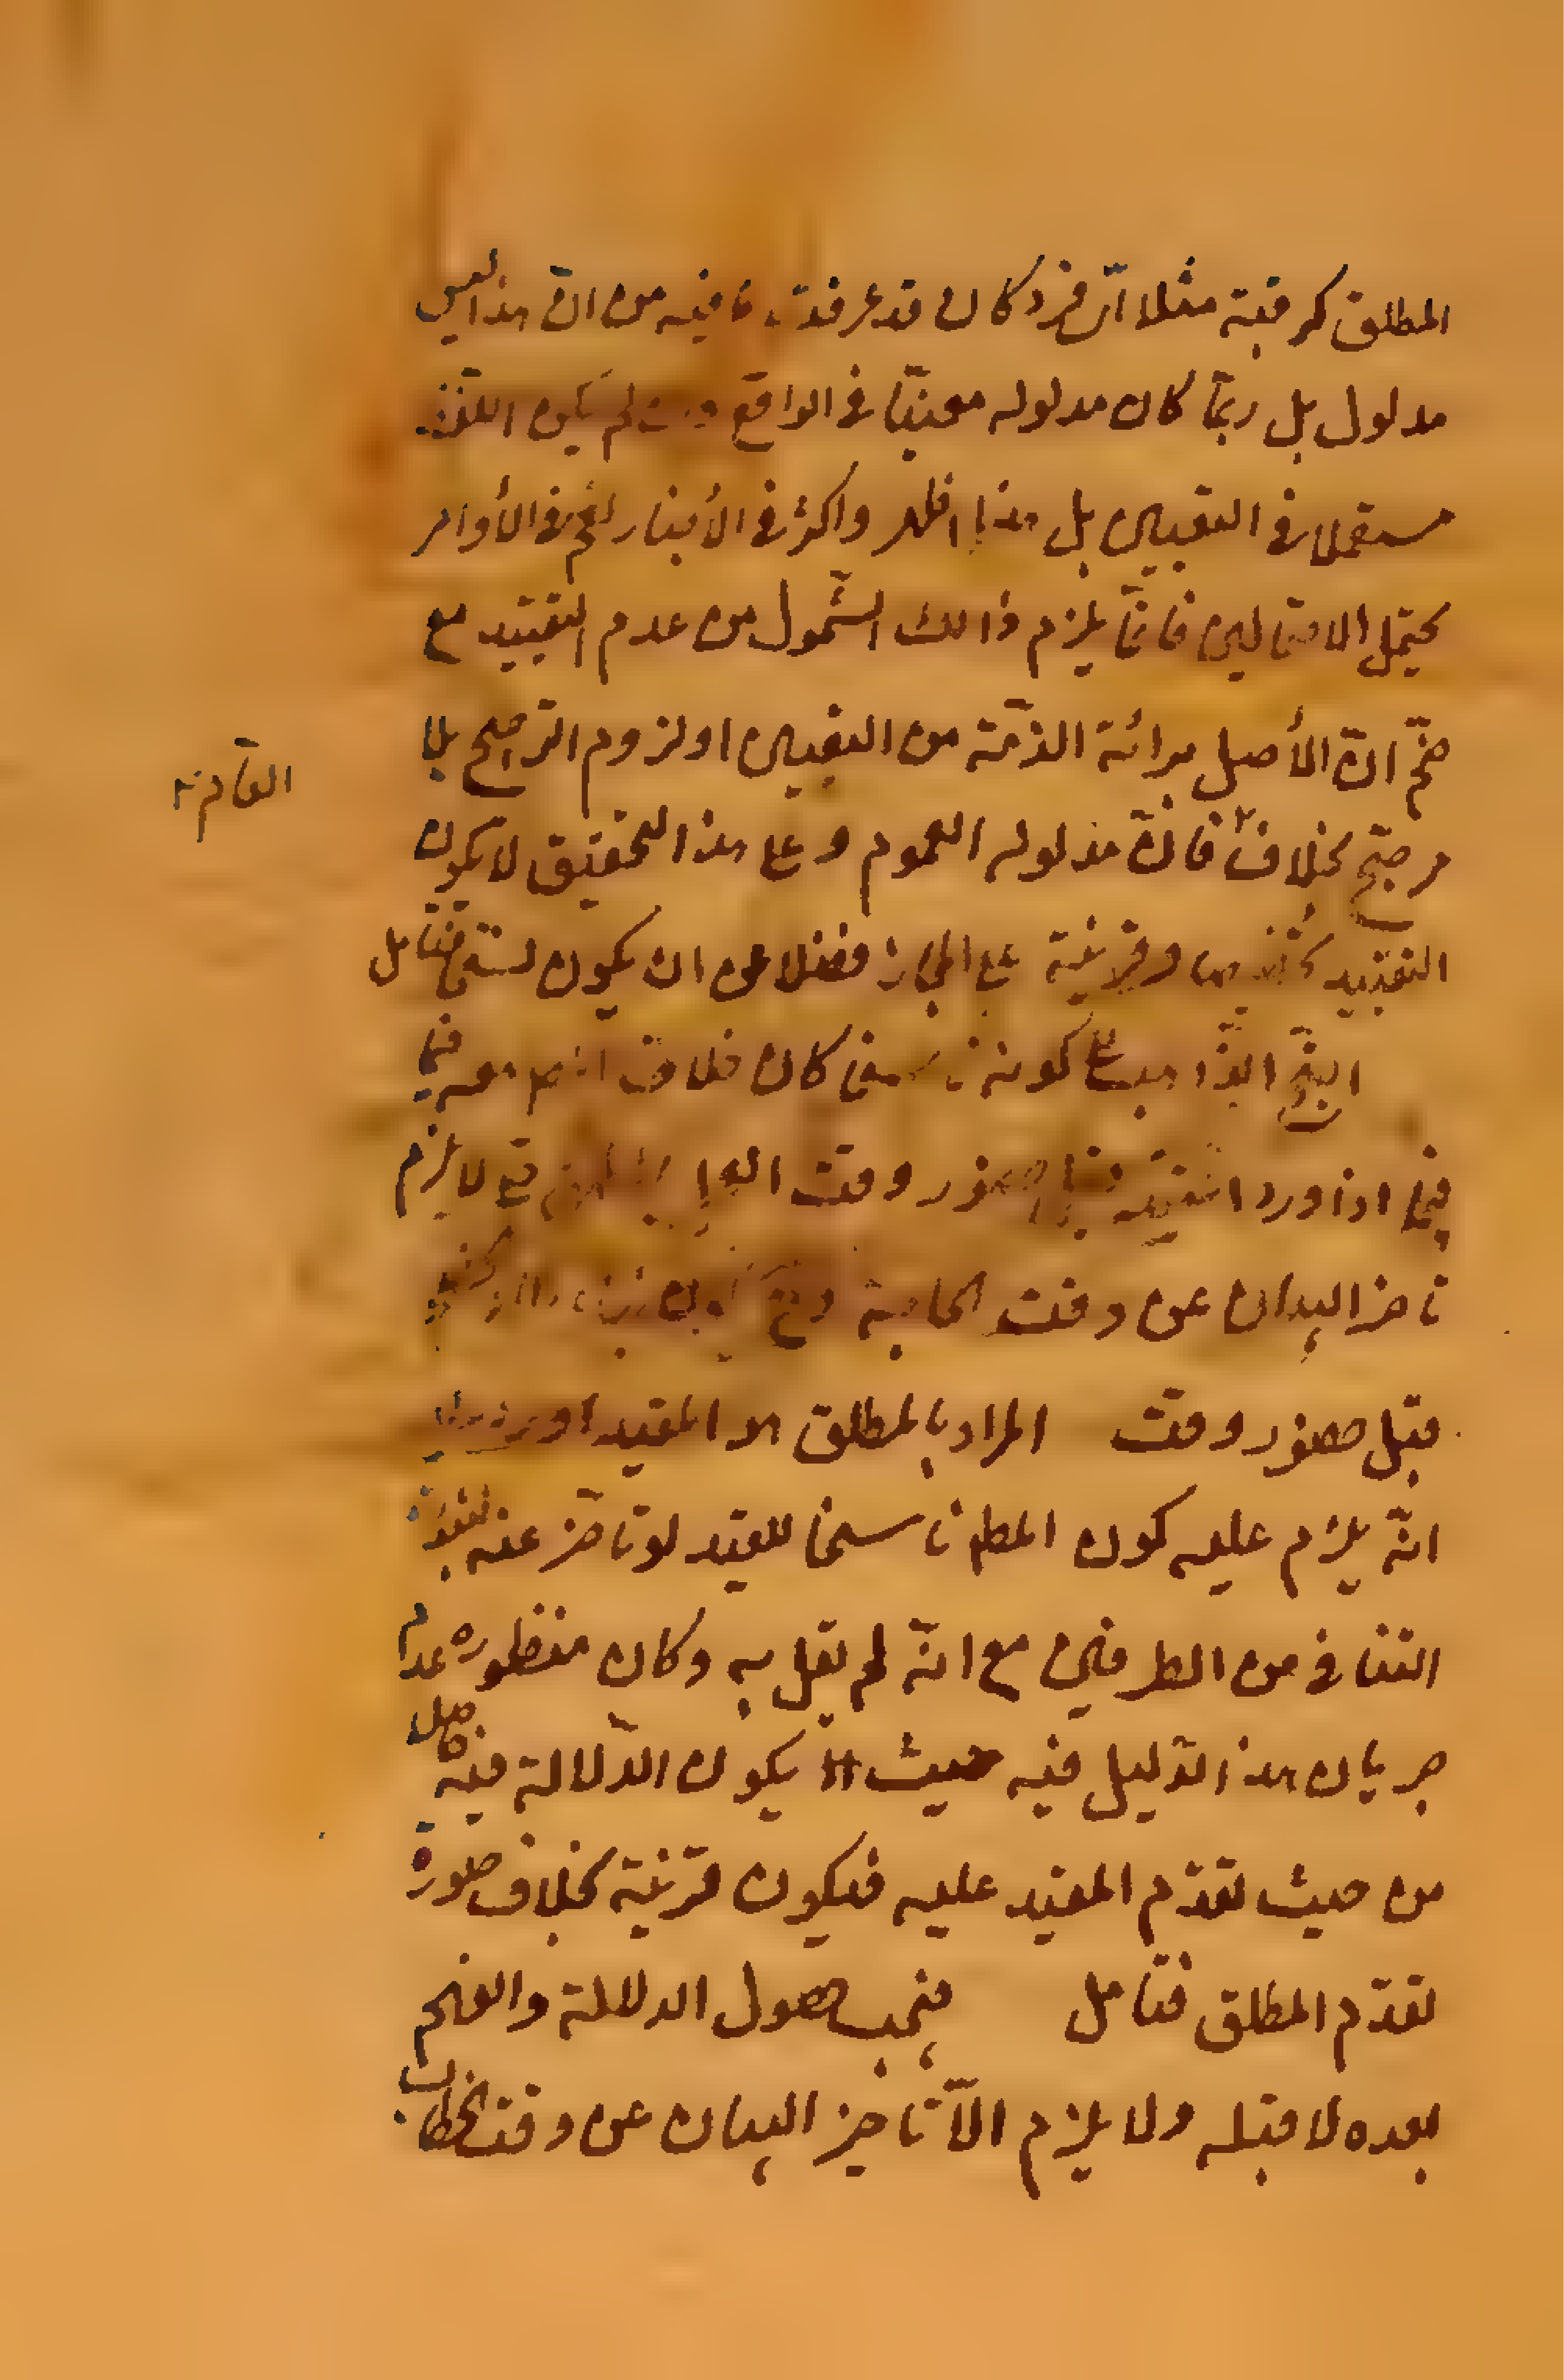 المطلق كرقبة مثلا اىّ فرد كان قد عرفت ما فيه من انّ هذا ليس
مدلول بل ربّما كان مدلوله معيّنا في الواقع لم يكن اللفظ
مستعملا في التعيين بل هذا اظهر واكثر في الأخبار نعم في الأوامر
يحتمل الاحتمالين فانّما يلزم ذالك الشّمول من عدم التقييد مع
ضمّ انّ الأصل برائة الذمّة من التعيين او لزوم التّرجيح بلا
مرجّح بخلاف فانّ مدلوله العموم وعلى هذا التّحقيق لا يكون
العامّ
التقييد تخصيصا وقرينة على المجاز فضلا عن ان يكون نسخا فتأمّل
احتجّ الذّاهب على كونه ناسخا كان خلاف فيما
فيما اذا ورد التقييد قبل حضور وقت ح لا يلزم
تاخر البيان عن وقت الحاجة
قبل حضور وقت المراد بالمطلق هو المقيد اورد
انّه يلزم عليه كون المطلق ناسخا للمقيّد لو تاخّر عنه
التنافي من الطرفين مع انّه لم يقل به وكان منظوره عدم
جريان هذا الدّليل فيه حيث يكون الدّلالة فيه حاصل
من حيث تقدّم المقيّد عليه فيكون قرينة بخلاف صورة
تقدّم المطلق فتأمل فيجب حصول الدلالة والفهم
بعده لا قبله ولا يلزم الّا تاخير البيان عن وقت الخطاب